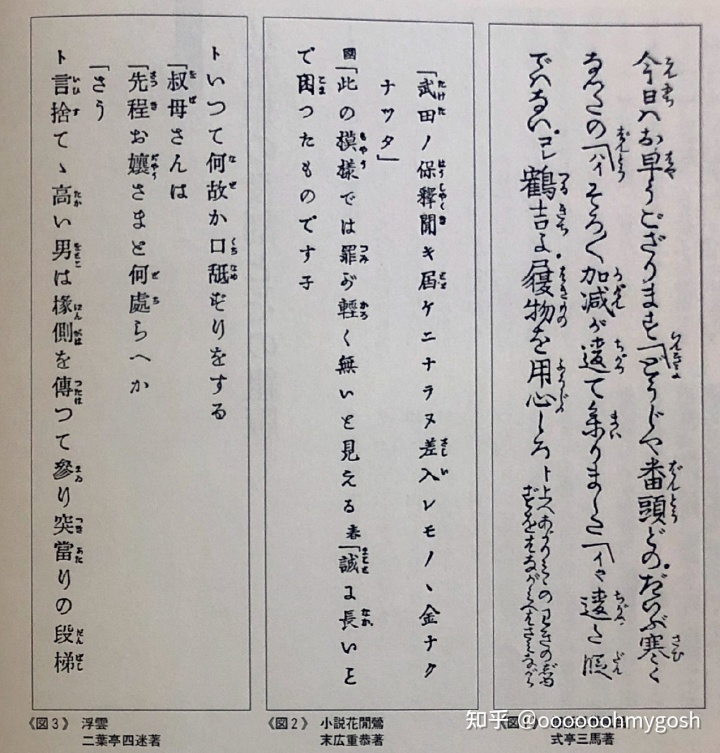 今日ハお早うござりますト「どうじや番頭どの。だいぶ寒く
なつたの「ハイそろ〳〵加減が違て参りました「イや違た段
でハない。コレ鶴吉よ。履物を用心しろ
「武田ノ保釋聞キ届ケニナラヌ差入レモノヽ金ナク
ナツタ」
國「此の模様では罪が輕く無いと見える 春「誠に長いと
で困つたものです子
トいつて何故か口舐ずりをする
「叔母さんは
「先程お孃さまと何處らへか
「さう
ト言捨てヽ高い男は椽側を傳つて參り突當りの段梯
《図2》 小説花間鶯
末広重恭著
《図3》 浮雲
二葉亭四迷著
式亭三馬著
知乎 @ooooooohmygosh